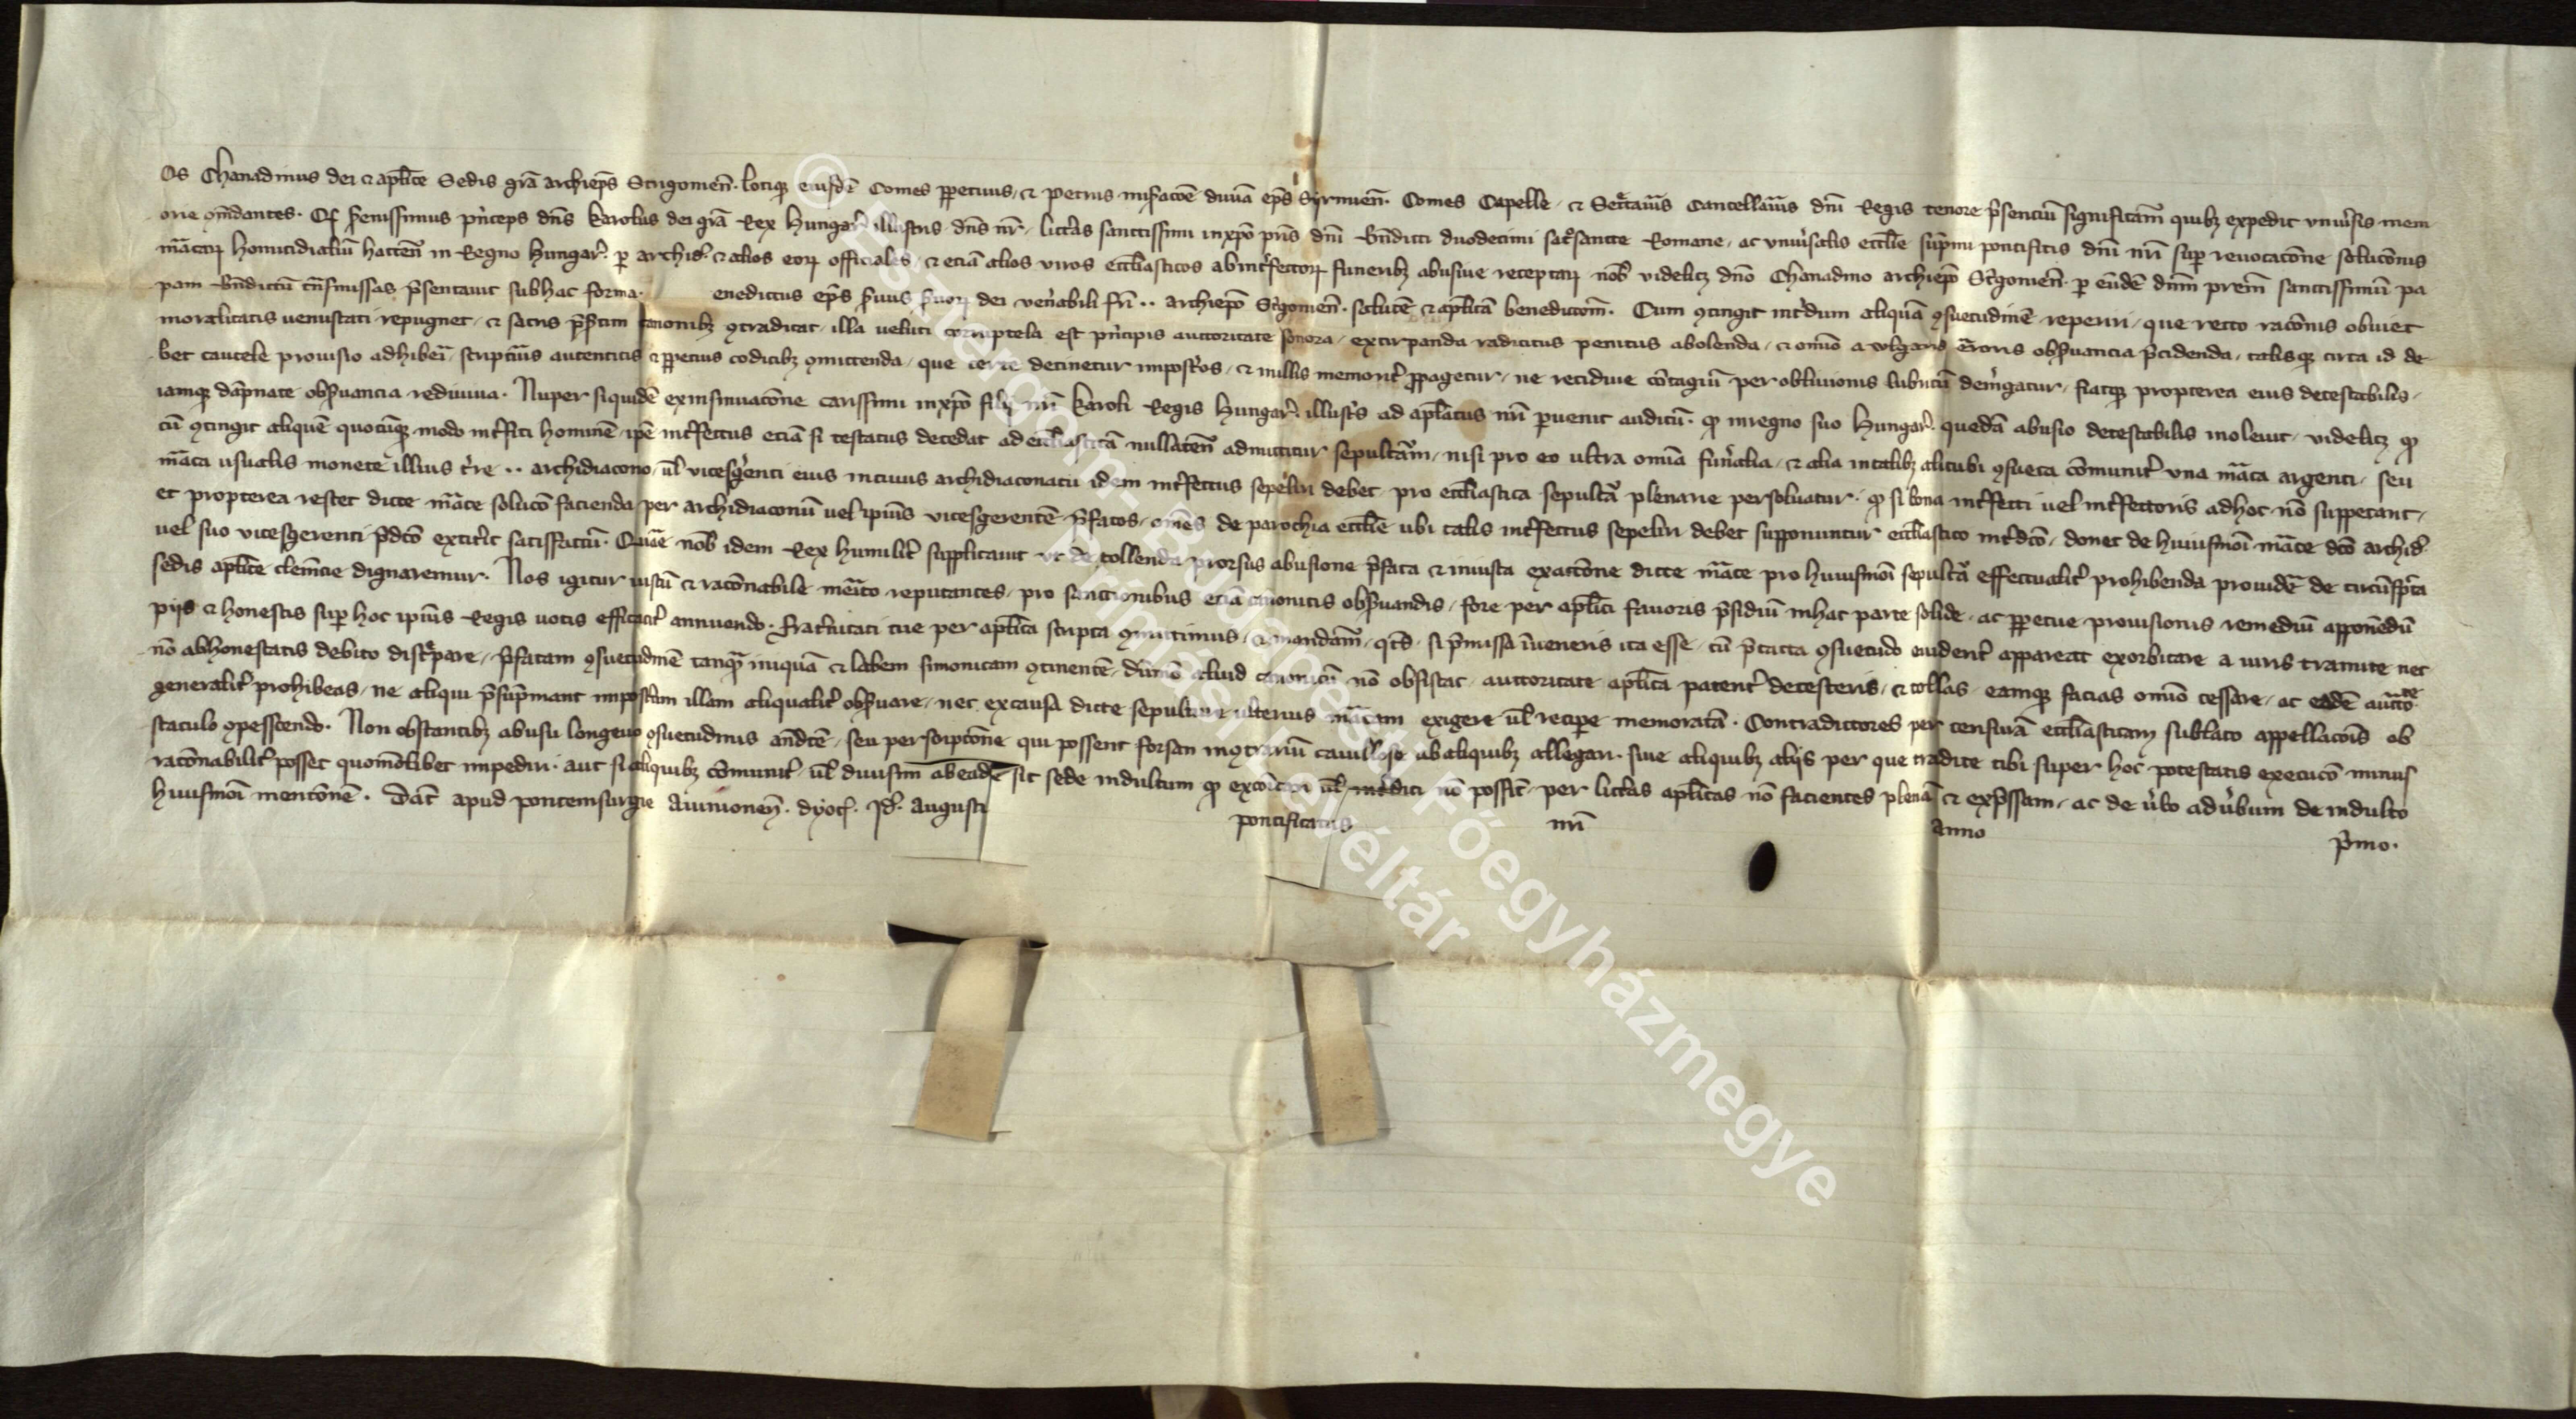 Os Chanadinus dei et aplice Sedis grā archieps Strigonien. lociq; eiusdē Comes ppetuus, et Petrus miseracōe diuīa eps Syrmien. Comes Capelle, et Secretarius Cancellarius dni Regis tenore psenciū significam quibz expedit vniuersis mem
orie comdantes. Q serenissimus princeps dns Karolus dei grā Rex Hungar illustris dns nr, litteras sanctissimi in xpo pris dni Bndicti duodecimi sacrosancte Romane, ac vniuersalis ecclie supmi pontificis dni nri sup reuocacōne solucōnis
marcarum homicidialiū hacten in Regno Hungar. p archid. et alios eorum officiales, et eciā alios viros ecclīasticos ab interfectorum funeribz abusiue receptarum nob videlicz dno Chanadino archiepo Strigonien. p eundē dnm prem sanctissimū pa
pam Bndictū transmissas psentauit sub hac forma. enedictus eps seruus seruorum dei venerabili fri .. archiepo Strigonien. salutē et aplicā benedictōm. Cum contingit interdum aliquā consuetudinē reperiri, que recto racōnis obuiet
moralitatis uenustati repugnet, et sacris psertim canonibz contradicat, illa ueluti corruptela est principis auctoritate sonora, extirpanda radicitus penitus abolenda, et omnino a volgaris erroris obseruancia precidenda, talisq; circa id de
bet cautele prouisio adhiberi, scripturis autenticis et ppetuis codicibz committenda, que certe detinetur imposteros, et nullis memoriter propagetur, ne recidiue contagiū per obliuionis lubricū demergatur, fiatq; propterea eius detestabilis,
iamq; dāpnate obseruancia rediuiua. Nuper siquidē ex insinuacōne carissimi in xpo filij nri Karoli Regis Hungar. illustris ad aplatus nri peruenit auditū. q in regno suo Hungar. quedā abusio detestabilis inoleuit, videlicz q
cū contingit aliquē quocūq; modo interfici hominē, ipē interfectus eciā si testatus decedat ad ecclīasticā nullaten admittitur sepulturam, nisi pro eo ultra omnia funeralia, et alia in talibz alicubi consueta cōmuniter vna marca argenti, seu
marca usualis monete illius terre .. archidiacono, uel vicesgerenti eius in cuius archidiaconatu idem interfectus sepeliri debet, pro ecclīastica sepultura plenarie persoluatur. q si bona interfecti uel interfectoris ad hoc nō suppetant,
et propterea restet dicte marce solucō facienda per archidiaconū uel ipius vicesgerentē prefatos, omēs de parochia ecclie ubi talis interfectus sepeliri debet supponuntur ecclīastico interdicō, donec de huiusmoi marce dcō archid.
uel suo vicesgerenti pdcō extiterit satisfactū. Quare nob idem Rex humiliter supplicauit ut de tollenda prorsus abusione prefata et iniusta exactōne dicte marce pro huiusmoi sepultura effectualiter prohibenda prouidere de circūspecta
sedis aplice clemencie dignaremur. Nos igitur iustū et racōnabile merito reputantes, pro sanctionibus eciā canonicis obseruandis, fore per aplici fauoris presidiū in hac parte solide, ac ppetue prouisionis remediū apponēdū
pijs et honestis super hoc ipius Regis uotis efficaciter annuendo. Fraternitati tue per aplica scripta committimus, et mandam, qtus si premissa inueneris ita esse, cū pretacta consuetudo euidenter appareat exorbitare a iuris tramite nec
nō ab honestatis debito discrepare, prefatam consuetudinē tanquā iniquā et labem simonicam continentē, dūmō aliud canonicū nō obsistat, auctoritate aplica patenter detesteris, et tollas, eamq; facias omnino cessare, ac eadē auctorite
generaliter prohibeas, ne aliqui presumant imposterum illam aliqualiter obseruare, nec ex causa dicte sepulture ulterius marcam exigere uel recipere memoratā. Contradictores per censurā ecclīasticam sublato appellacōis ob
staculo compesscendo. Non obstantibz abusu longeuo consuetudinis andcē, seu perscripcōne qui possent forsan in contrariū cauillose ab aliquibz allegari. siue aliquibz alijs per que tradite tibi super hoc potestatis execucō minus
racōnabiliter posset quomōlibet impediri. aut si aliquibz cōmuniter uel diuisim ab eadē sit sede indultum q excōicari uel interdici nō possint, per litteras aplicas nō facientes plenā et expressam, ac de uerbo ad uerbum de indulto
huiusmoi mencōnē. Dat apud pontemsurgie Auinionen. dyoc. Id. Augusti pontificatus nri Anno primo.
© Esztergom-Budapesti Főegyházmegye
Prímási Levéltár